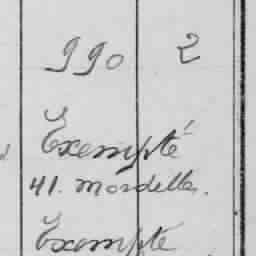 990 2
Exempté
41. Mordelles.
Exempté